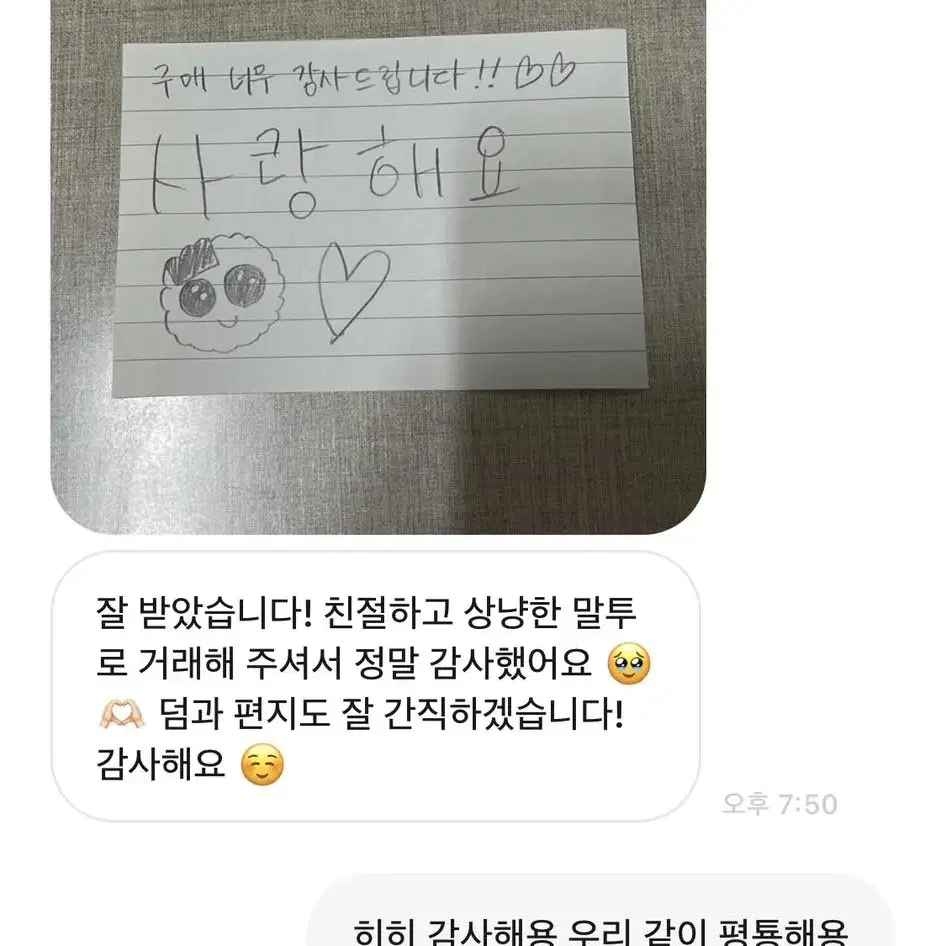 구매 너무 감사드립니다!! ♡♡
사랑해요
♡
잘 받았습니다! 친절하고 상냥한 말투
로 거래해 주셔서 정말 감사했어요 🥹
🫶🏻 덤과 편지도 잘 간직하겠습니다!
감사해요 ☺️
오후 7:50
히히 감사해용 우리 같이 평툥해용